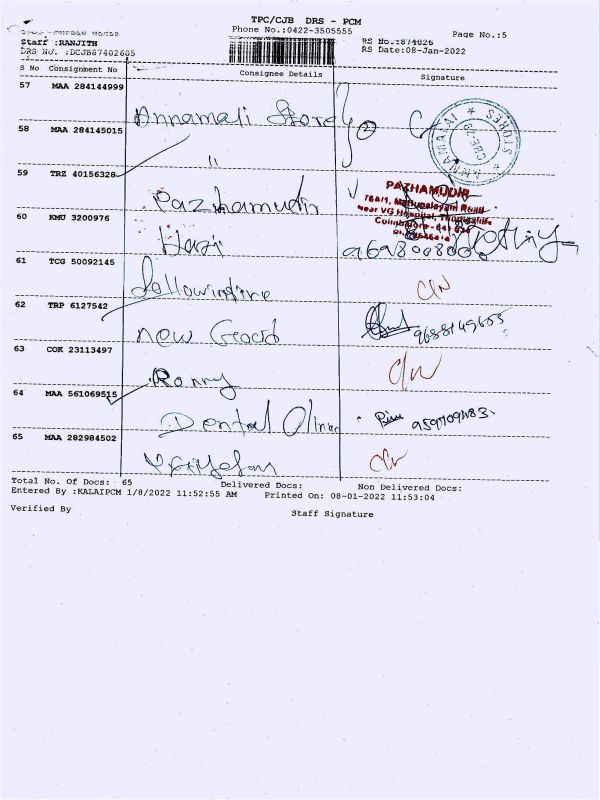 TPC/CJB DRS - PCM
Phone No.:0422-3505555
Page No.:5
Staff :RANJITH
RS No.:874026
DRS No. :DCJB87402605
RS Date:08-Jan-2022
S No Consignment No Consignee Details Signature
57 MAA 284144999
Annamali Store
2
58 MAA 284145015
"
STORES * ANNAMALAI *
59 TRZ 40156328
Pazhamudir
PAZHAMUDIR
Near VG Hospital,
60 KMU 3200976
Hari
61 TCG 50092145
C/N
62 TRP 6127542
New Good
9688149603
63 COK 23113497
Ronny
C/N
64 MAA 561069515
Dental Clinic
65 MAA 282984502
C/N
Total No. Of Docs: 65 Delivered Docs: Non Delivered Docs:
Entered By :KALAIPCM 1/8/2022 11:52:55 AM Printed On: 08-01-2022 11:53:04
Verified By Staff Signature